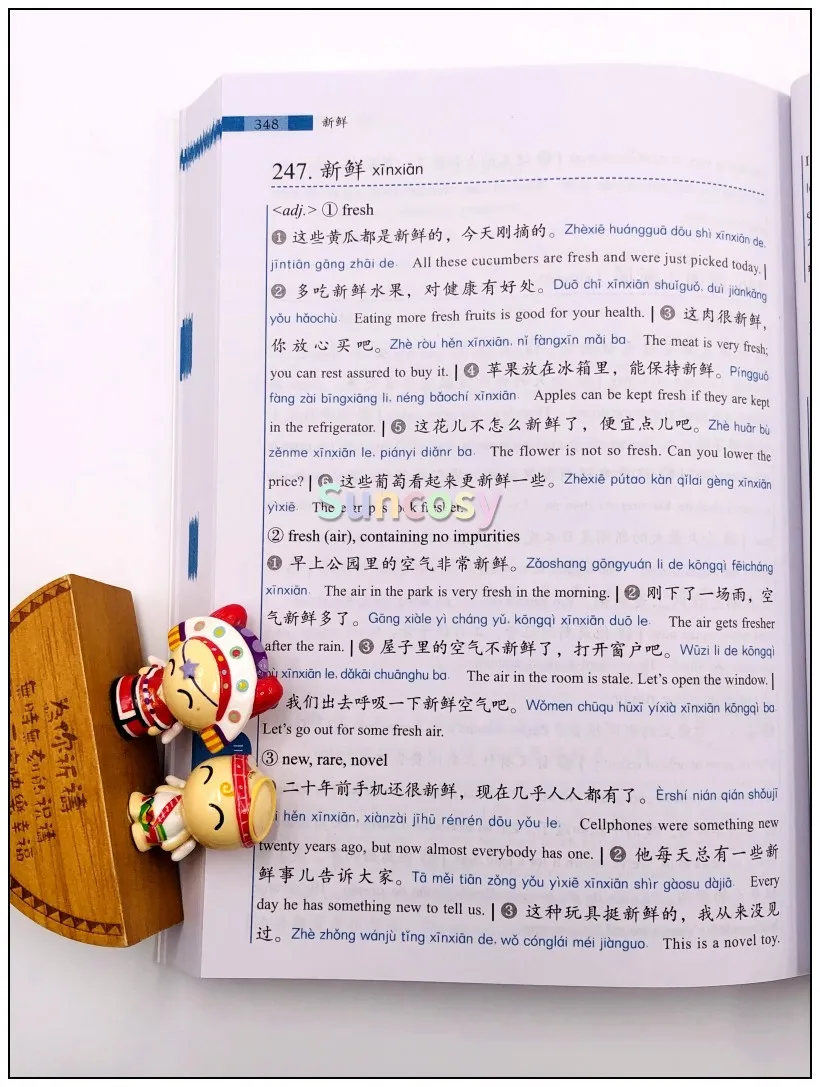 348 新鲜
247. 新鲜 xīnxiān
<adj.> ① fresh
❶ 这些黄瓜都是新鲜的，今天刚摘的。Zhèxiē huángguā dōu shì xīnxiān de,
jīntiān gāng zhāi de. All these cucumbers are fresh and were just picked today. |
❷ 多吃新鲜水果，对健康有好处。Duō chī xīnxiān shuǐguǒ, duì jiànkāng
yǒu hǎochù. Eating more fresh fruits is good for your health. | ❸ 这肉很新鲜，
你放心买吧。Zhè ròu hěn xīnxiān, nǐ fàngxīn mǎi ba. The meat is very fresh;
you can rest assured to buy it. | ❹ 苹果放在冰箱里，能保持新鲜。Píngguǒ
fàng zài bīngxiāng li, néng bǎochí xīnxiān. Apples can be kept fresh if they are kept
in the refrigerator. | ❺ 这花儿不怎么新鲜了，便宜点儿吧。Zhè huār bù
zěnme xīnxiān le, piányi diǎnr ba. The flower is not so fresh. Can you lower the
price? | ❻ 这些葡萄看起来更新鲜一些。Zhèxiē pútao kàn qǐlai gèng xīnxiān
Suncosy
yìxiē. The grapes look fresher.
② fresh (air), containing no impurities
❶ 早上公园里的空气非常新鲜。Zǎoshang gōngyuán li de kōngqì fēicháng
xīnxiān. The air in the park is very fresh in the morning. | ❷ 刚下了一场雨，空
气新鲜多了。Gāng xiàle yì cháng yǔ, kōngqì xīnxiān duō le. The air gets fresher
after the rain. | ❸ 屋子里的空气不新鲜了，打开窗户吧。Wūzi li de kōngqì
bù xīnxiān le, dǎkāi chuānghu ba. The air in the room is stale. Let's open the window. |
我们出去呼吸一下新鲜空气吧。Wǒmen chūqu hūxī yíxià xīnxiān kōngqì ba.
Let's go out for some fresh air.
③ new, rare, novel
二十年前手机还很新鲜，现在几乎人人都有了。Èrshí nián qián shǒujī
hěn xīnxiān, xiànzài jīhū rénrén dōu yǒu le. Cellphones were something new
twenty years ago, but now almost everybody has one. | ❷ 他每天总有一些新
鲜事儿告诉大家。Tā měi tiān zǒng yǒu yìxiē xīnxiān shìr gàosu dàjiā. Every
day he has something new to tell us. | ❸ 这种玩具挺新鲜的，我从来没见
过。Zhè zhǒng wánjù tǐng xīnxiān de, wǒ cónglái méi jiànguo. This is a novel toy.
為你祈禱